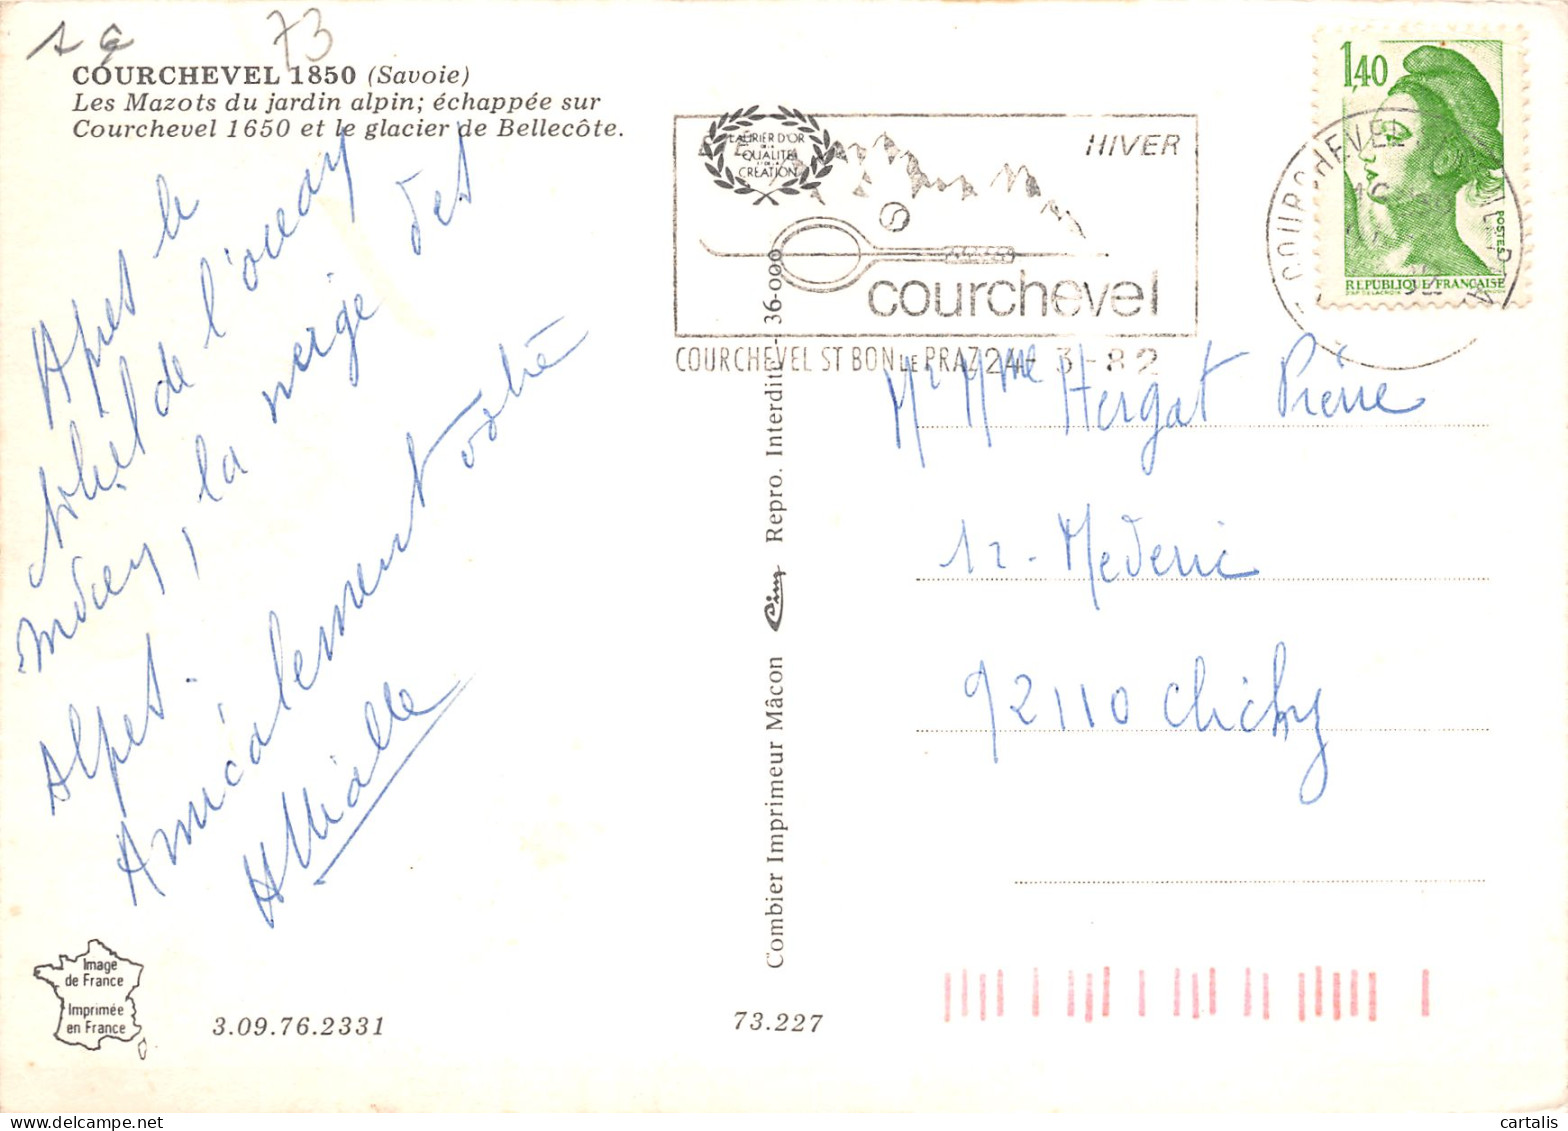 73
COURCHEVEL 1850 (Savoie)
Les Mazots du jardin alpin; échappée sur
Courchevel 1650 et le glacier de Bellecôte.
Apres le
soleil de l'ocean
indien, la neige des
Alpes.
Amicalement votre
Image
de France
Imprimée
en France
3.09.76.2331
73.227
Combier Imprimeur Mâcon Cim Repro. Interdite 36-000
LAURIER D'OR
DE LA
QUALITE
ET DE LA
CREATION
HIVER
courchevel
COURCHEVEL ST BON LE PRAZ 24 - 3 - 82
COURCHEVEL
1,40
POSTES
REPUBLIQUE FRANÇAISE
Mr Mme Hergat Pierre
12 - Mederic
92110 Clichy
cartalis